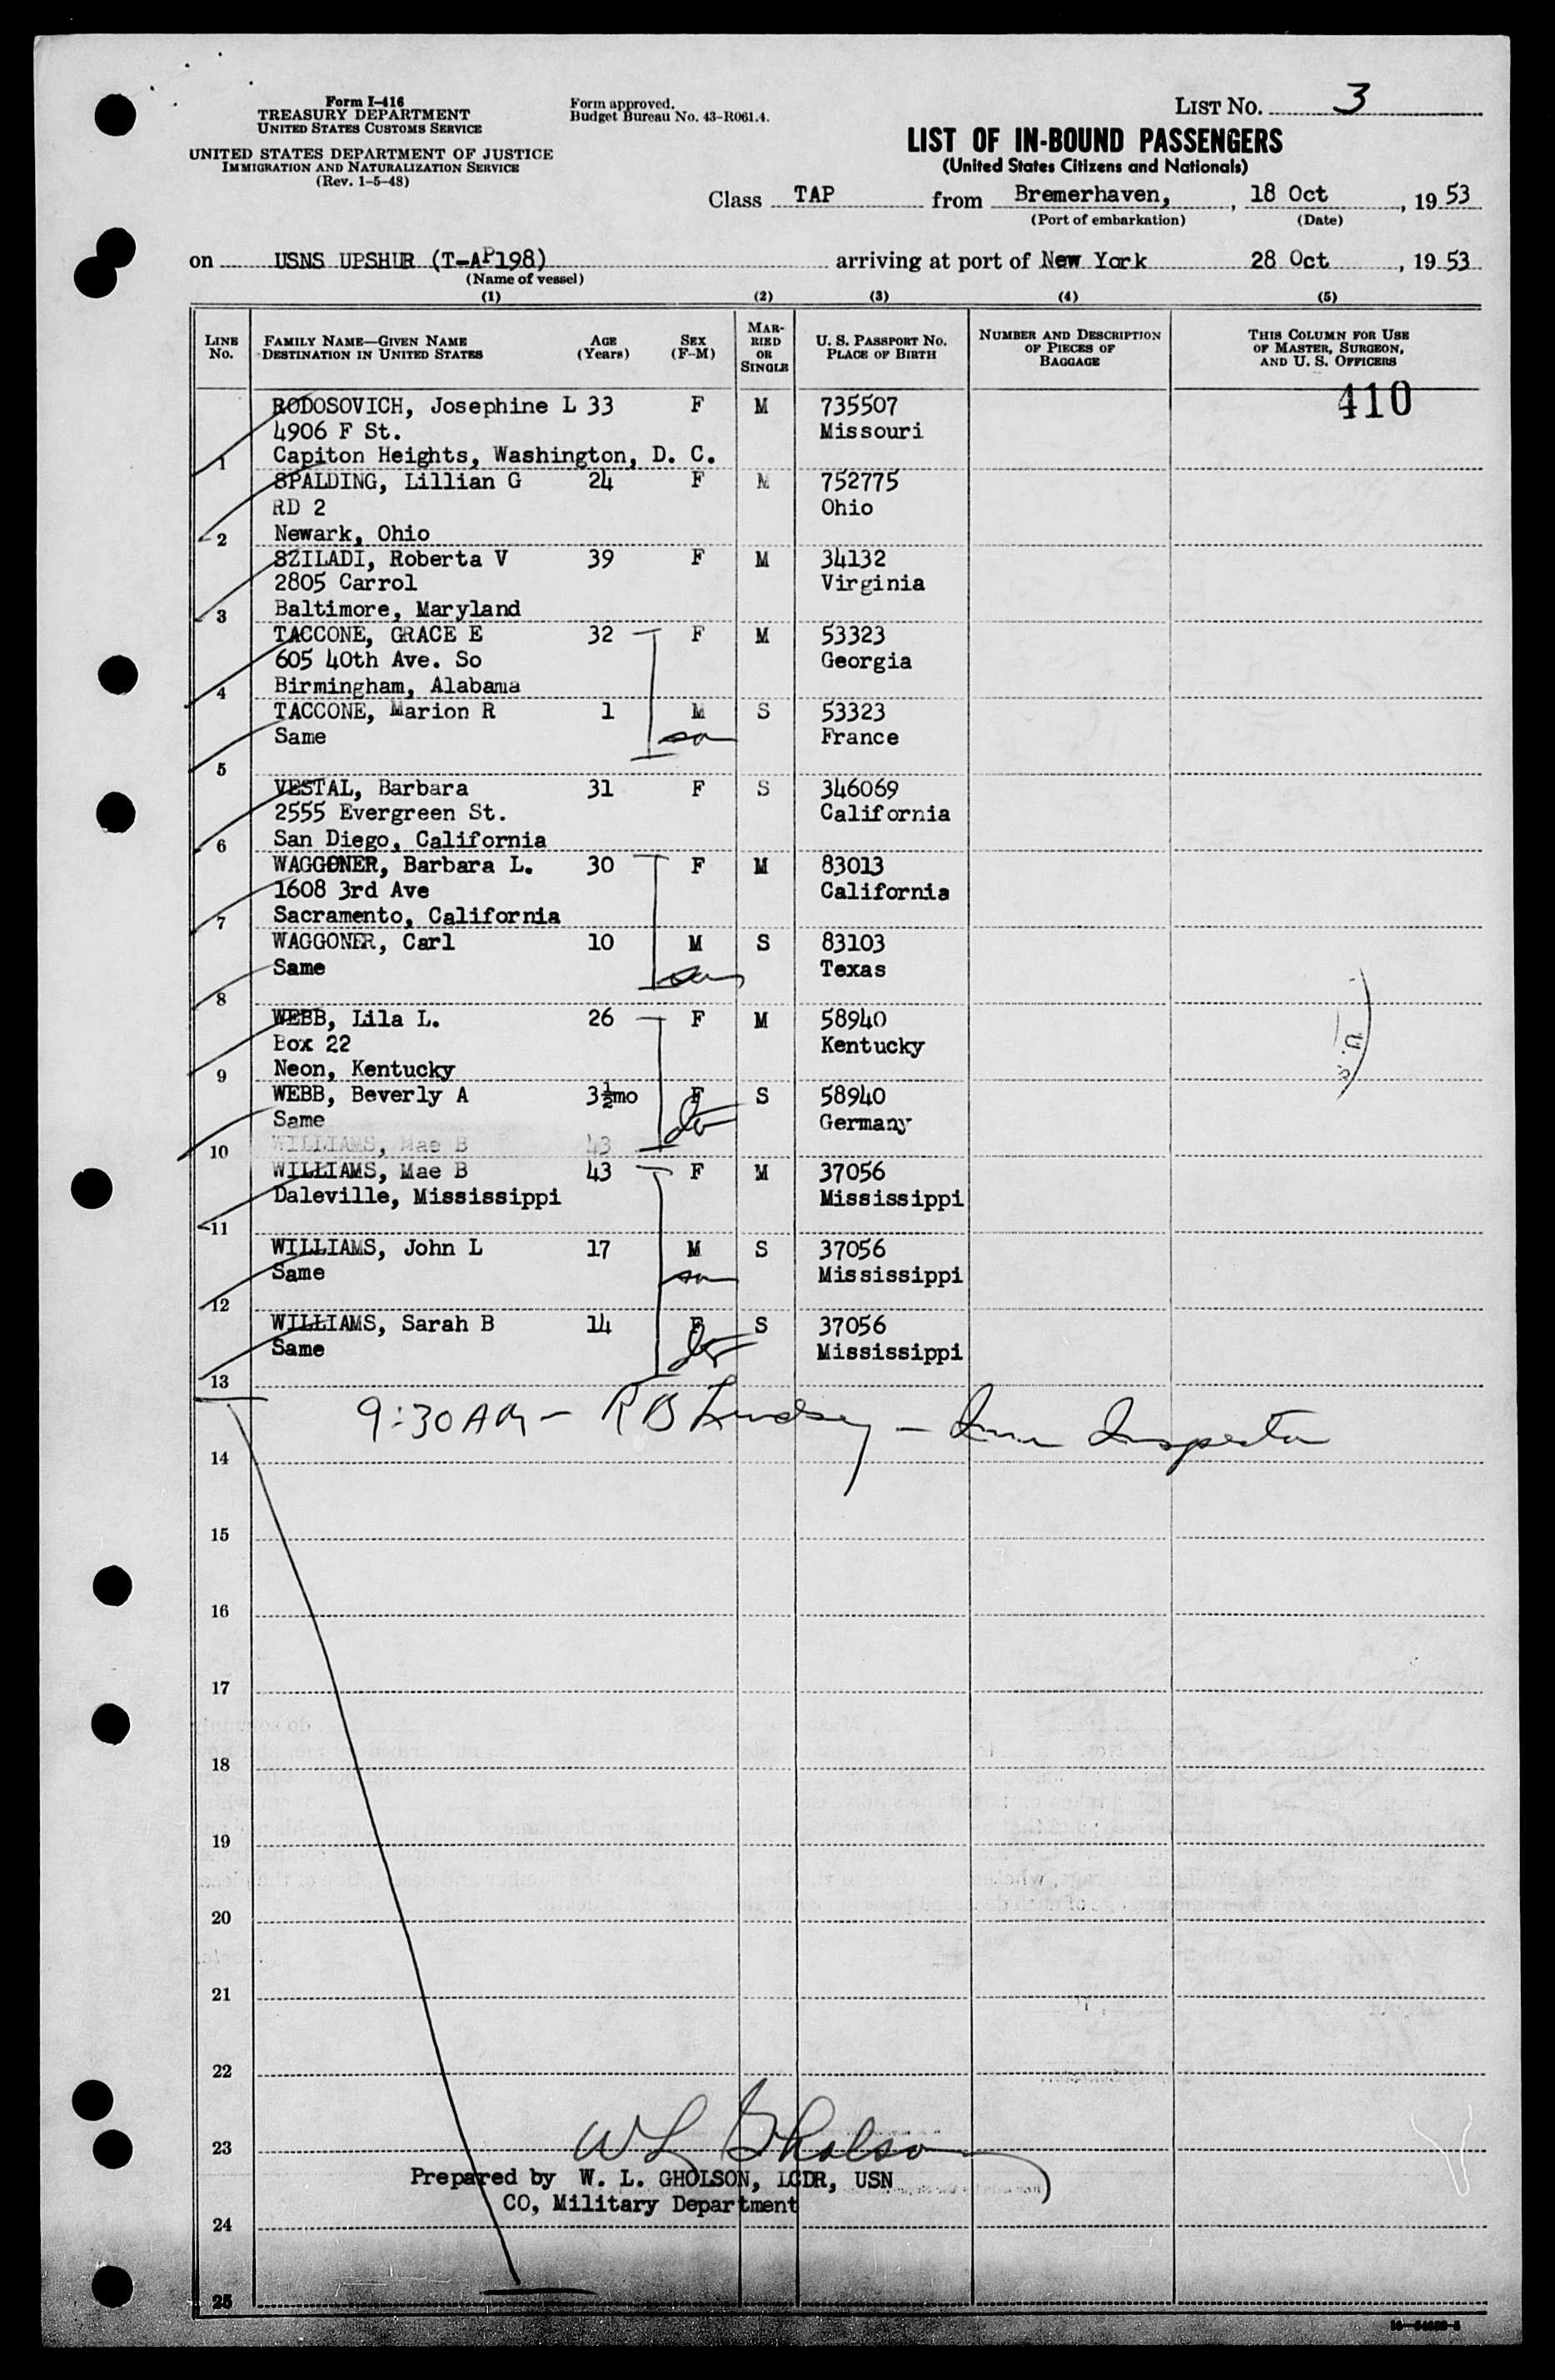 Form I-416
TREASURY DEPARTMENT
UNITED STATES CUSTOMS SERVICE
UNITED STATES DEPARTMENT OF JUSTICE
IMMIGRATION AND NATURALIZATION SERVICE
(Rev. 1-5-48)
Form approved.
Budget Bureau No. 43-R061.4.
LIST No. 3
LIST OF IN-BOUND PASSENGERS
(United States Citizens and Nationals)
Class TAP from Bremerhaven, , 18 Oct , 19 53
(Port of embarkation) (Date)
on USNS UPSHUR (T-AP198) arriving at port of New York 28 Oct , 19 53
(Name of vessel)
(1) (2) (3) (4) (5)
LINE No. FAMILY NAME—GIVEN NAME DESTINATION IN UNITED STATES AGE (Years) SEX (F-M) MARRIED OR SINGLE U. S. PASSPORT No. PLACE OF BIRTH NUMBER AND DESCRIPTION OF PIECES OF BAGGAGE THIS COLUMN FOR USE OF MASTER, SURGEON, AND U. S. OFFICERS
410
RODOSOVICH, Josephine L 33 F M 735507
4906 F St. Missouri
1 Capiton Heights, Washington, D. C.
SPALDING, Lillian G 24 F M 752775
RD 2 Ohio
2 Newark, Ohio
SZILADI, Roberta V 39 F M 34132
2805 Carrol Virginia
3 Baltimore, Maryland
TACCONE, GRACE E 32 F M 53323
605 40th Ave. So Georgia
4 Birmingham, Alabama
TACCONE, Marion R 1 M S 53323
Same son France
5
VESTAL, Barbara 31 F S 346069
2555 Evergreen St. California
6 San Diego, California
WAGGONER, Barbara L. 30 F M 83013
1608 3rd Ave California
7 Sacramento, California
WAGGONER, Carl 10 M S 83103
Same son Texas
8
WEBB, Lila L. 26 F M 58940
Box 22 Kentucky
9 Neon, Kentucky
WEBB, Beverly A 3½mo F S 58940
Same Germany
10 WILLIAMS, Mae B 43
WILLIAMS, Mae B 43 F M 37056
Daleville, Mississippi Mississippi
11
WILLIAMS, John L 17 M S 37056
Same son Mississippi
12
WILLIAMS, Sarah B 14 F S 37056
Same Mississippi
13
9:30 AM - R B Lindsey - Imm Inspector
14
15
16
17
18
19
20
21
22
W L Gholson
23
Prepared by W. L. GHOLSON, LCDR, USN
CO, Military Department
24
25